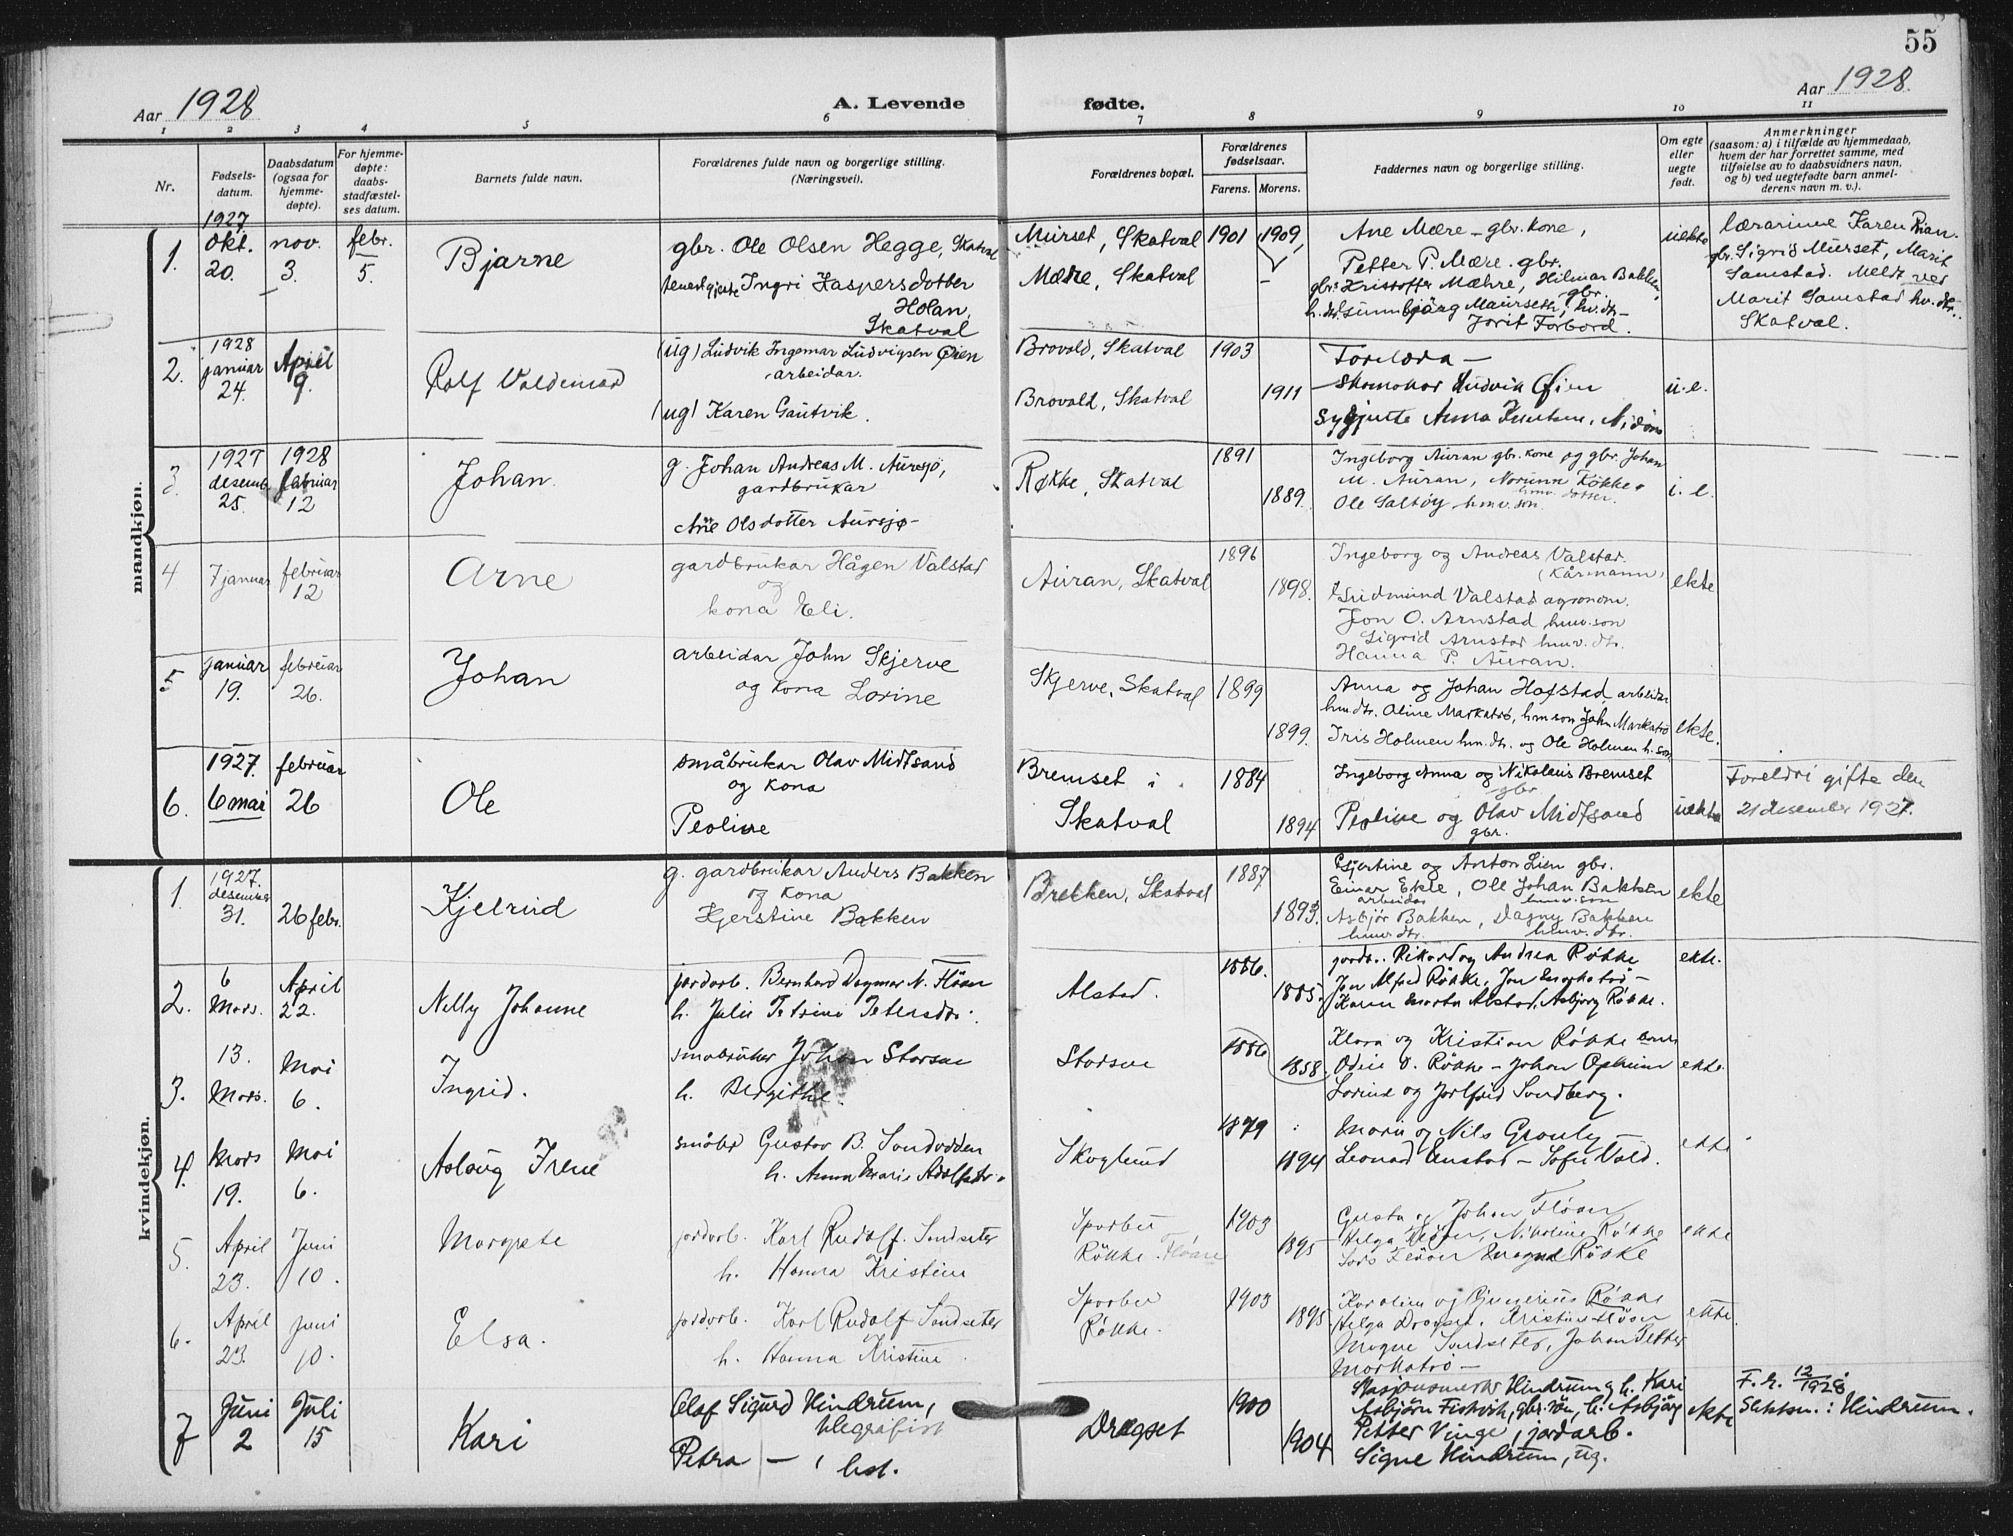 55
Aar 1928
A. Levende
fødte.
Aar 1928.
1 2 3 4 5 6 7 8 9 10 11
Nr.
Fødsels-
datum.
Daabsdatum
(ogsaa for
hjemme-
døpte).
For hjemme-
døpte:
daabs-
stadfæstel-
ses datum.
Barnets fulde navn.
Forældrenes fulde navn og borgerlige stilling.
(Næringsvei).
Forældrenes bopæl.
Forældrenes
fødselsaar.
Farens. Morens.
Faddernes navn og borgerlige stilling.
Om egte
eller
uegte
født.
Anmerkninger
(saasom: a) i tilfælde av hjemmedaab,
hvem der har forrettet samme, med
tilføielse av to daabsvidners navn,
og b) ved uegtefødte barn anmel-
derens navn m. v.).
mandkjøn.
1. 1927 okt. 20. nov. 3. febr. 5. Bjarne
gbr. Ole Olsen Hegge, Skatval
Ingri Kaspersdotter
Holan,
Skatval
Murset, Skatval 1901 1909
Mære, Skatval -
Ane Mære - gbr. kone,
Petter P. Mære. gbr.
gbr. Kristoffer Mæhre, Hilmar Bakken,
gbr.
Jorit Forbord.
uekte
lærarinne Karen
gbr. Sigrid Murset, Marit
Samstad. Meldt ved
Marit Samstad hv. dtr.
Skatval.
2. 1928 januar 24. April 9. Rolf Valdemar
(ug) Ludvik Ingemar Ludvigsen Øien
arbeidar.
(ug) Karen Gautvik.
Brovold, Skatval 1903
Brovold, Skatval 1911
Foreldra -
Skomakar Ludvik Øien
Sygjente Anna
u. e.
3. 1927 desemb. 25. 1928 februar 12 Johan.
g. Johan Andreas M. Aursjø,
gardbrukar
Ane Olsdotter Aursjø -
Røkke, Skatval 1891
1889.
Ingeborg Auran gbr. kone og gbr. Johan
M. Auran, Norunn Røkke
hmv. dotter.
Ole Saltøy hmv. son.
i. e.
4 7 januar februar 12 Arne
gardbrukar Hågen Valstad
og
kona Eli.
Auran, Skatval 1896
1898.
Ingeborg og Andreas Valstad.
(Kårmann)
Gudmund Valstad agronom.
Jon O. Arnstad hmv. son
Sigrid Arnstad hmv. dtr.
Hanna P. Auran.
ekte
5 januar 19. februar 26. Johan
arbeidar John Skjerve
og kona Lorine
Skjerve, Skatval 1899
1899.
Anna og Johan Hofstad, arbeidar
hm. dtr. Oline Markatrø, hm son John Markatrø
Iris Holmen hm. dtr. og Ole Holmen h. son
ekte.
6. 1927. 6 mai februar 26 Ole
småbrukar Olav Midtsand
og kona
Peoline
Bremset i
Skatval
1884
1894
Ingeborg Anna og Nikolaus Bremset
gbr
Peoline og Olav Midtsand
gbr.
uekte
Foreldri gifte den
21 desember 1927.
kvindekjøn.
1 1927. desember 31. 26 febr. Kjelrud
g. gardbrukar Anders Bakken
og kona
Kjerstine Bakken
Brekken, Skatval 1887
1893.
Gjertine og Anton Lien gbr.
Einar Ekle, Ole Johan Bakken
arbeidar hmv. son
Asbjør Bakken, Dagny Bakken
hmv. dtr. hmv. dtr.
ekte
2. 6 Mars. April 22. Nelly Johanne
jordarb. Bernhard Dagmar N. Fløan
h. Julie Petrine Petersdtr.
Alstad. 1886.
1885.
jordbr. Rikard og Andrea Røkke
Jon Alfred Røkke, Jon
Karen Marta Alstad, Asbjørg Røkke.
ekte.
3. 13. Mars. Mai 6. Ingrid.
smabruker Johan Storsve
h. Bergithe.
Storsve 1886
1888.
Klara og Kristian Røkke
Odin O. Røkke - Johan Opheim
Lorine og Jorlfred Sundberg.
ekte
4. Mars 19. Mai 6. Aslaug Irene
småbr Gustav B. Sandvodden
h. Anna Marie Adolfsdtr.
Skoglund 1879
1894
Marie og Nils Granly -
Leonard Anstad - Sofie Vold.
ekte
5. April 23. Juni 10. Margrete
jordarb. Karl Rudolf Sundseter
h. Hanna Kristine
Sporbu
Røkke. Fløan
1903
1895
Gusta og Johan Fløan
Helga Fløan, Nikoline Røkke
Magne Røkke
ekte
6. April 23. juni 10. Elsa.
jordarb. Karl Rudolf Sundseter
h. Hanna Kristine.
Sporbu
Røkke.
1903
1895
Karoline og Røkke
Helga Dragset, Kristine Fløan
Magne Sundseter, Johan Petter
Markatrø -
ekte.
7 Juni 2 Juli 15 Kari
Olaf Sigurd Hindrum,
telegrafist
Petra - , hst.
Dragset 1900
1904
Stasjonsmester Hindrum & h. Kari
Asbjørn Fiskvik, gbr. søn, h. Asbjørg
Petter Vinge, jordarb.
Signe Hindrum, ug.
ekte
F. r. 12/1928.
Slektsn.: Hindrum.